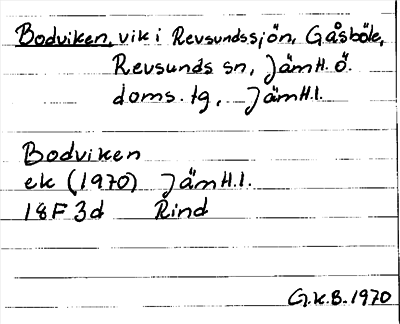 Bodviken, vik i Revsundssjön, Gåsböle,
Revsunds sn, Jämtl. Ö.
doms. tg, Jämtl.
Bodviken
ek (1970) Jämtl.
18F 3d Rind
G.K.B. 1970